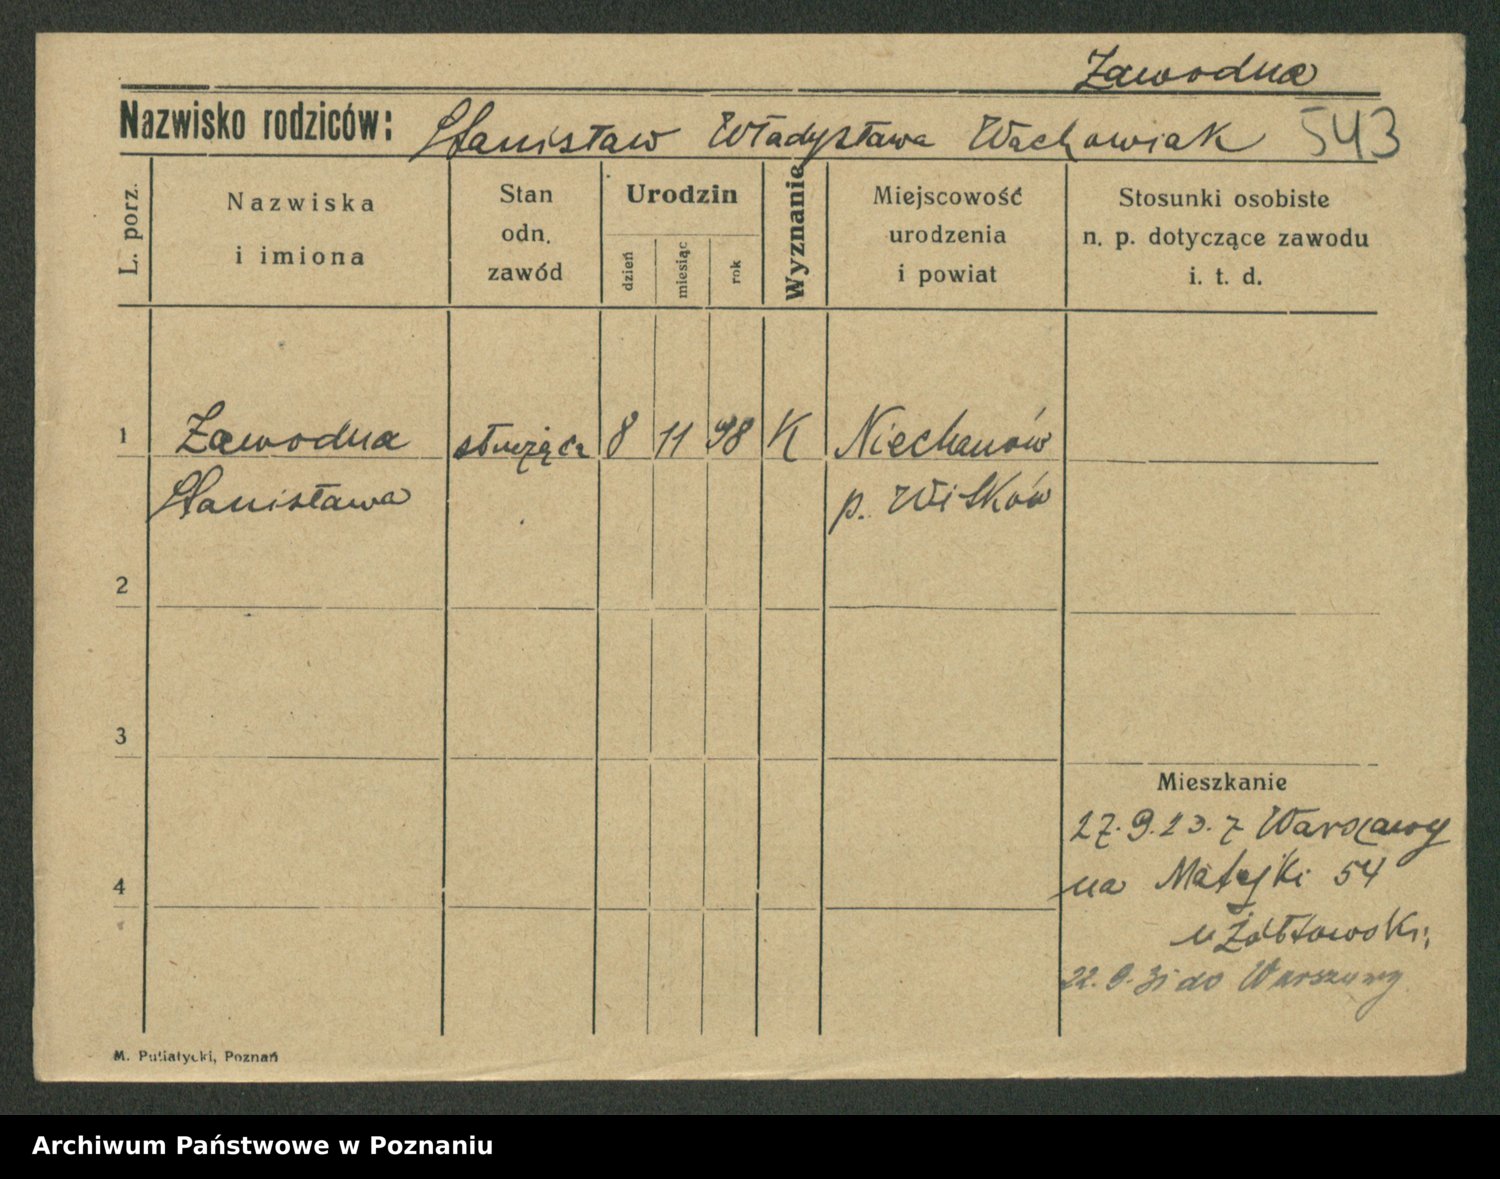 Zawodna
Nazwisko rodziców: Stanisław Władysława Wachowiak 543
L. porz.
Nazwiska
i imiona
Stan
odn.
zawód
Urodzin
dzień
miesiąc
rok
Wyznanie
Miejscowość
urodzenia
i powiat
Stosunki osobiste
n. p. dotyczące zawodu
i. t. d.
1 Zawodna służąca 8 11 98 K Niechanów
Stanisława p. Witków
2
3
Mieszkanie
27.9.23. z Warszawy
4 na Matejki 54
u Żółtowski;
22.9.31 do Warszawy
M. Putiatycki, Poznań
Archiwum Państwowe w Poznaniu